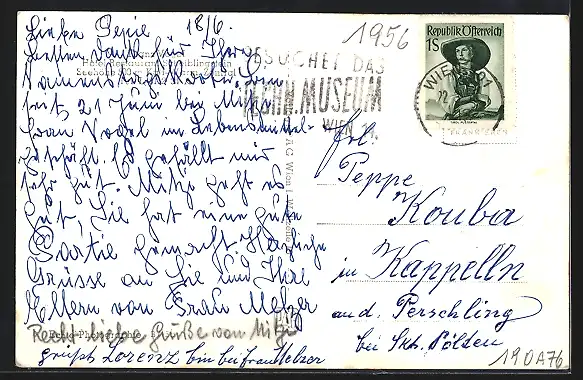 Liebe Pepie 18/6.
Besten Dank für Ihre
Namenstagskarte. Bin
seit 21 Juni bei Mitzi
Frau Vogel im Lebensmittel-
geschäft. Es gefällt mir
sehr gut. Mitzi geht es
gut, Sie hat eine gute
Partie gemacht Herzliche
Grüsse an Sie und Ihre
Eltern von Frau Melzer
Recht liebe Grüße von Mitzi
grüßt Lorenz bin bei Frau Melzer
1956
BESUCHET DAS
TECHN. MUSEUM
WIEN
WIEN
Republik Österreich
1S
Frl.
Peppe
Kouba
in Kappelln
a.d. Perschling
bei Skt. Pölten
190A76